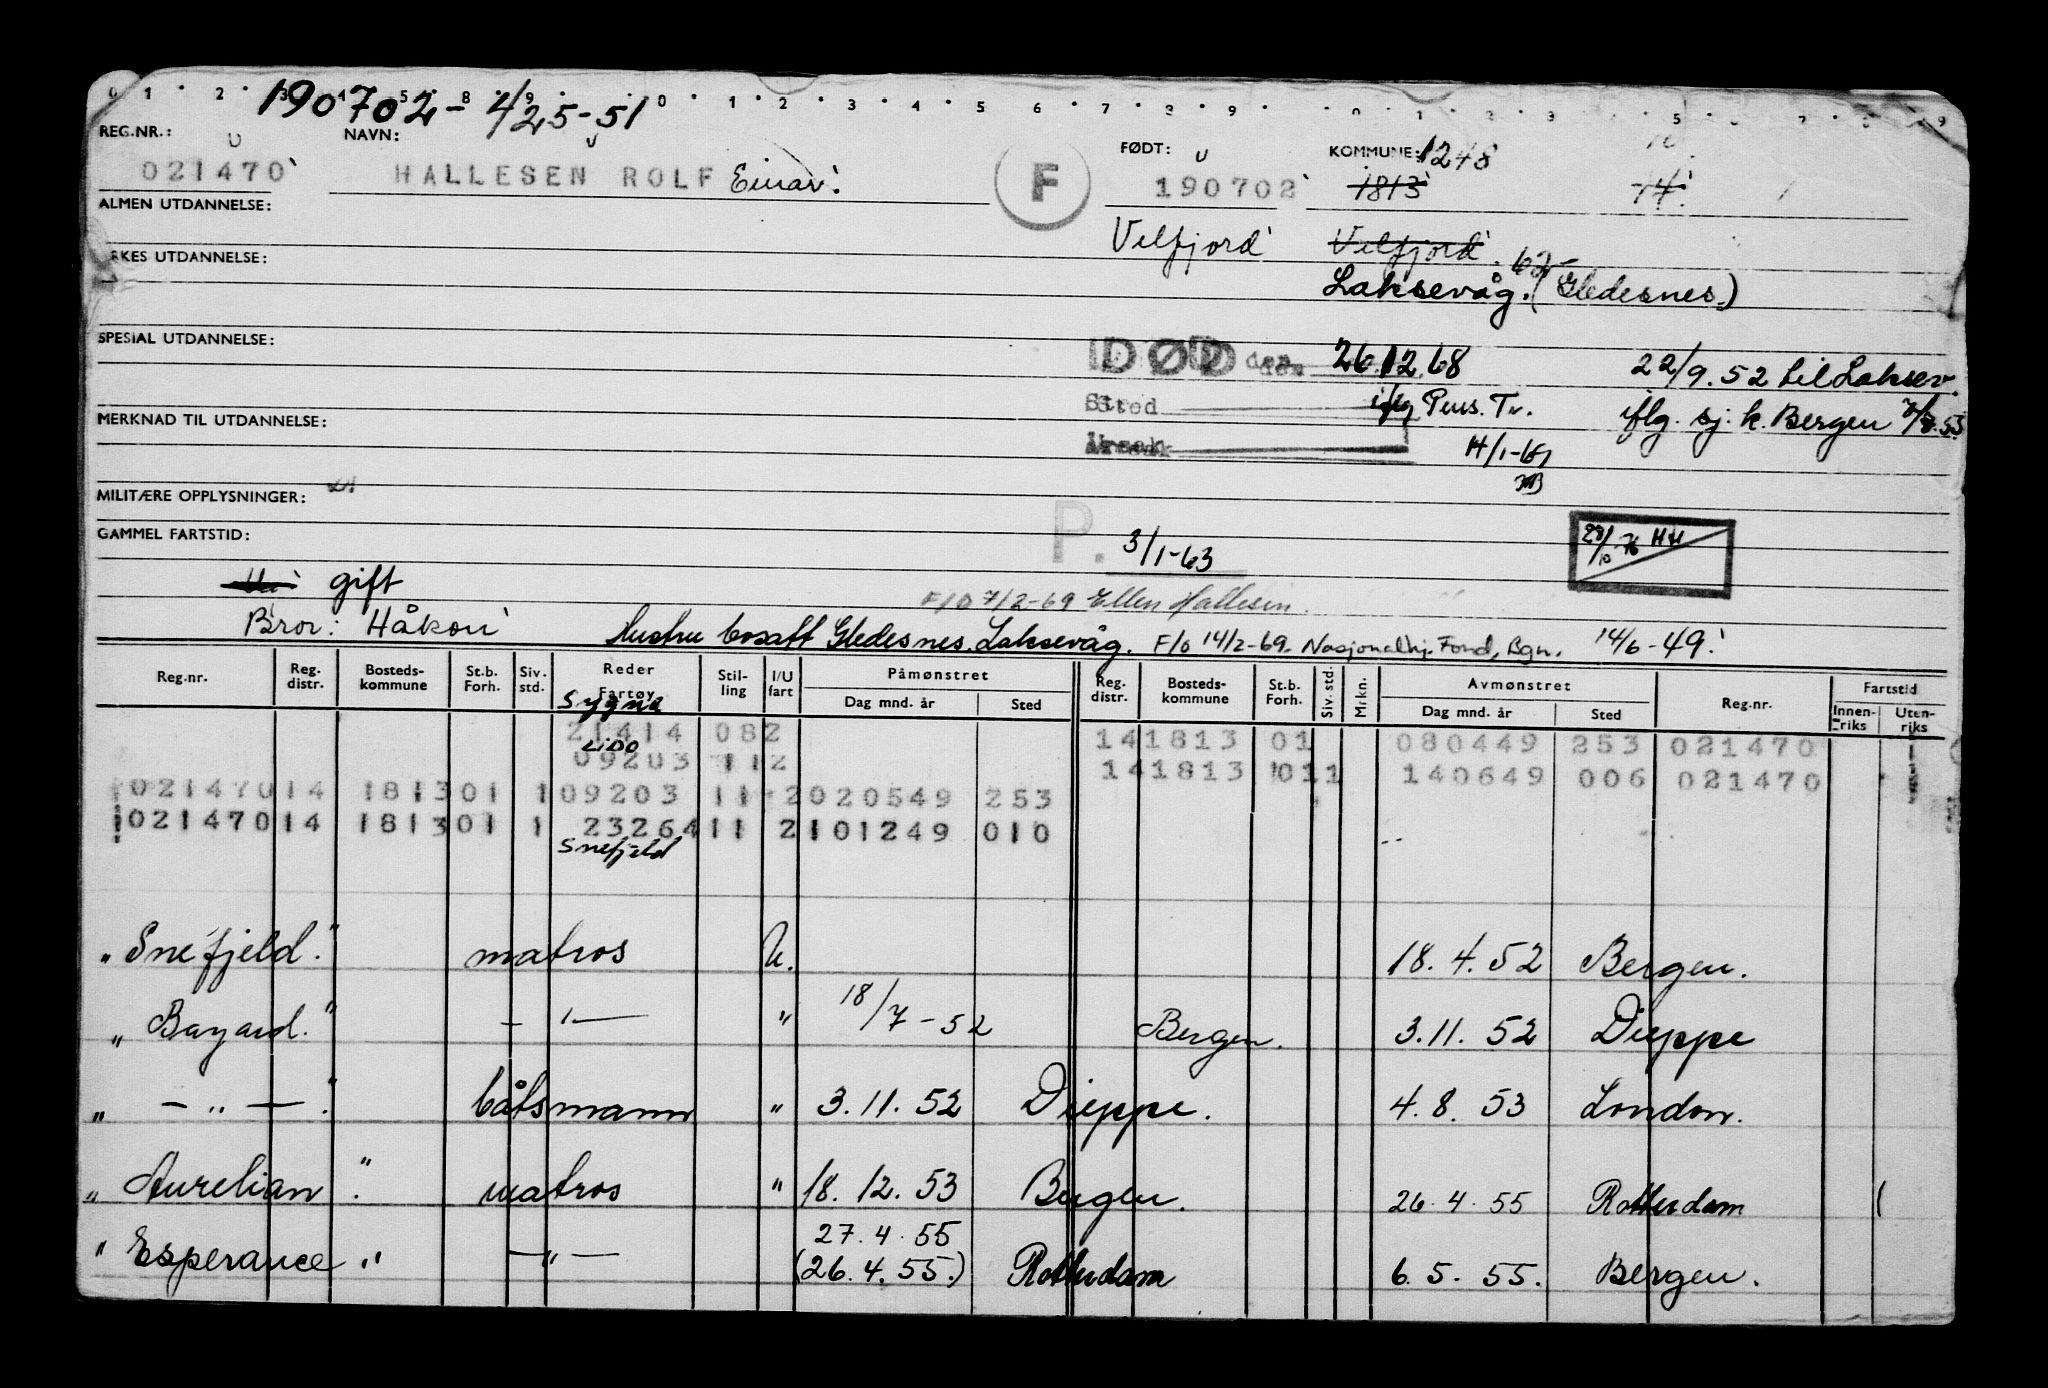 190702-4/25-51
REG.NR.: NAVN: FØDT: KOMMUNE: 1248
021470 HALLESEN ROLF Einar. F 190702 1813 14
ALMEN UTDANNELSE:
Velfjord Velfjord. 62-
RKES UTDANNELSE:
Laksevåg. (Gledesnes.)
SPESIAL UTDANNELSE:
DØD den 26.12.68 22/9.52 til Laksev.
Sted iflg Pens. Tr. iflg. sj. k. Bergen
MERKNAD TIL UTDANNELSE:
Årsak 14/1-69
MILITÆRE OPPLYSNINGER:
GAMMEL FARTSTID:
P. 3/1-63 28/10-76 HH
gift F/O 7/2-69 Ellen Hallesen.
Bror: Håkon Hustru bosatt Gledesnes. Laksevåg. F/o 14/2-69. Nasjonalhj. Fond, Bgn. 14/6-49.
Reg.nr. Reg. distr. Bosteds-kommune St.b. Forh. Siv. std. Reder Fartøy Stil-ling I/U fart Påmønstret Dag mnd. år Sted Reg. distr. Bosteds-kommune St.b. Forh. Siv. std. Mrkn. Avmønstret Dag mnd. år Sted Reg.nr. Fartstid Innen-riks Uten-riks
Sygna
21414 082 141813 01 080449 253 021470
Lido
09203 112 141813 011 140649 006 021470
02147014 181301 1 09203 11 2 020549 253
02147014 181301 1 23264 11 2 101249 010
Snefjeld
"Snefjeld." matros U. 18.4.52 Bergen.
"Bayard." - " - " 18/7-52 Bergen. 3.11.52 Dieppe
" - " - ." båtsmann " 3.11.52 Dieppe. 4.8.53 London.
"Aurelian". matros " 18.12.53 Bergen. 26.4.55 Rotterdam
27.4.55
"Esperance". - " - (26.4.55.) Rotterdam 6.5.55. Bergen.